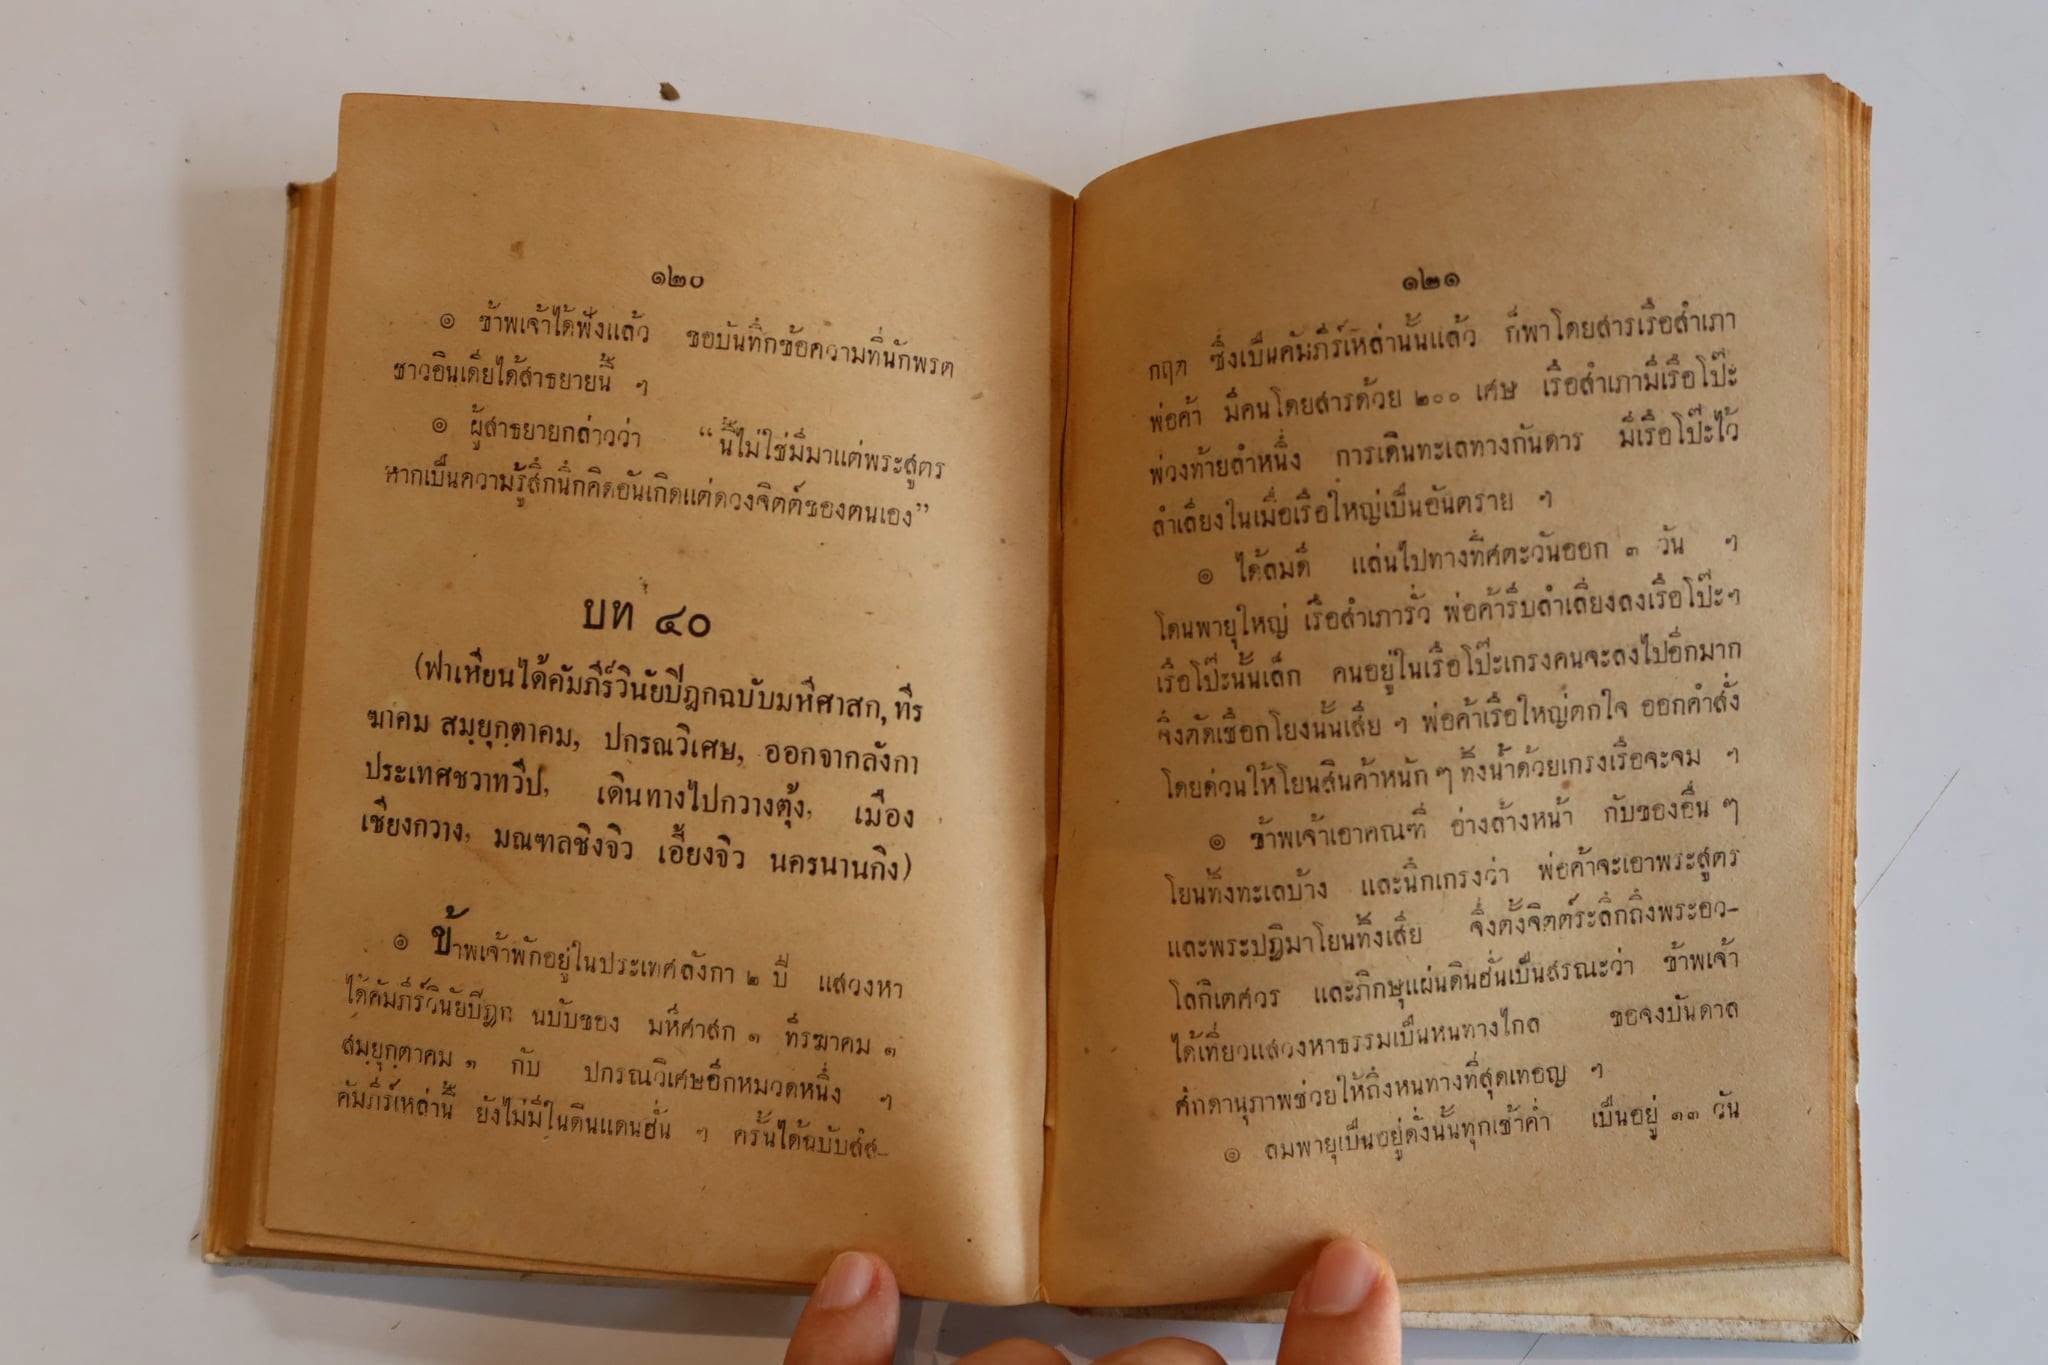 ๑๒๐
๏ ข้าพเจ้าได้ฟังแล้ว ขอบันทึกข้อความที่นักพรต
ชาวอินเดียได้สาธยายนี้ ๆ
๏ ผู้สาธยายกล่าวว่า “นี้ไม่ใช่มีมาแต่พระสูตร
หากเป็นความรู้สึกนึกคิดอันเกิดแต่ดวงจิตต์ของตนเอง”
บท ๔๐
(ฟาเหียนได้คัมภีร์วินัยปีฎกฉบับมหีศาสก, ทีร
ฆาคม สมฺยุกฺตาคม, ปกรณวิเศษ, ออกจากลังกา
ประเทศชวาทวีป, เดินทางไปกวางตุ้ง, เมือง
เชียงกวาง, มณฑลชิงจิว เอี้ยงจิว นครนานกิง)
๏ ข้าพเจ้าพักอยู่ในประเทศลังกา ๒ ปี แสวงหา
ได้คัมภีร์วินัยปีฎก ฉบับของ มหีศาสก ๑ ทีรฆาคม ๑
สมฺยุกฺตาคม ๑ กับ ปกรณวิเศษอีกหมวดหนึ่ง ๆ
คัมภีร์เหล่านี้ ยังไม่มีในดินแดนฮั่น ๆ ครั้นได้ฉบับสํส–
๑๒๑
กฤต ซึ่งเป็นคัมภีร์เหล่านั้นแล้ว ก็พาโดยสารเรือสำเภา
พ่อค้า มีคนโดยสารด้วย ๒๐๐ เศษ เรือสำเภามีเรือโป๊ะ
พ่วงท้ายลำหนึ่ง การเดินทะเลทางกันดาร มีเรือโป๊ะไว้
ลำเลียงในเมื่อเรือใหญ่เป็นอันตราย ๆ
๏ ได้ลมดี แล่นไปทางทิศตะวันออก ๓ วัน ๆ
โดนพายุใหญ่ เรือสำเภารั่ว พ่อค้ารีบลำเลียงลงเรือโป๊ะๆ
เรือโป๊ะนั้นเล็ก คนอยู่ในเรือโป๊ะเกรงคนจะลงไปอีกมาก
จึงตัดเชือกโยงนั้นเสีย ๆ พ่อค้าเรือใหญ่ตกใจ ออกคำสั่ง
โดยด่วนให้โยนสินค้าหนัก ๆ ทิ้งน้ำด้วยเกรงเรือจะจม ๆ
๏ ข้าพเจ้าเอาคณฑี อ่างล้างหน้า กับของอื่น ๆ
โยนทิ้งทะเลบ้าง และนึกเกรงว่า พ่อค้าจะเอาพระสูตร
และพระปฏิมาโยนทิ้งเสีย จึ่งตั้งจิตต์ระลึกถึงพระอว–
โลกิเตศวร และภิกษุแผ่นดินฮั่นเป็นสรณะว่า ข้าพเจ้า
ได้เที่ยวแสวงหาธรรมเป็นหนทางไกล ขอจงบันดาล
ศักดานุภาพช่วยให้ถึงหนทางที่สุดเทอญ ๆ
๏ ลมพายุเป็นอยู่ดั่งนั้นทุกเช้าค่ำ เป็นอยู่ ๑๓ วัน